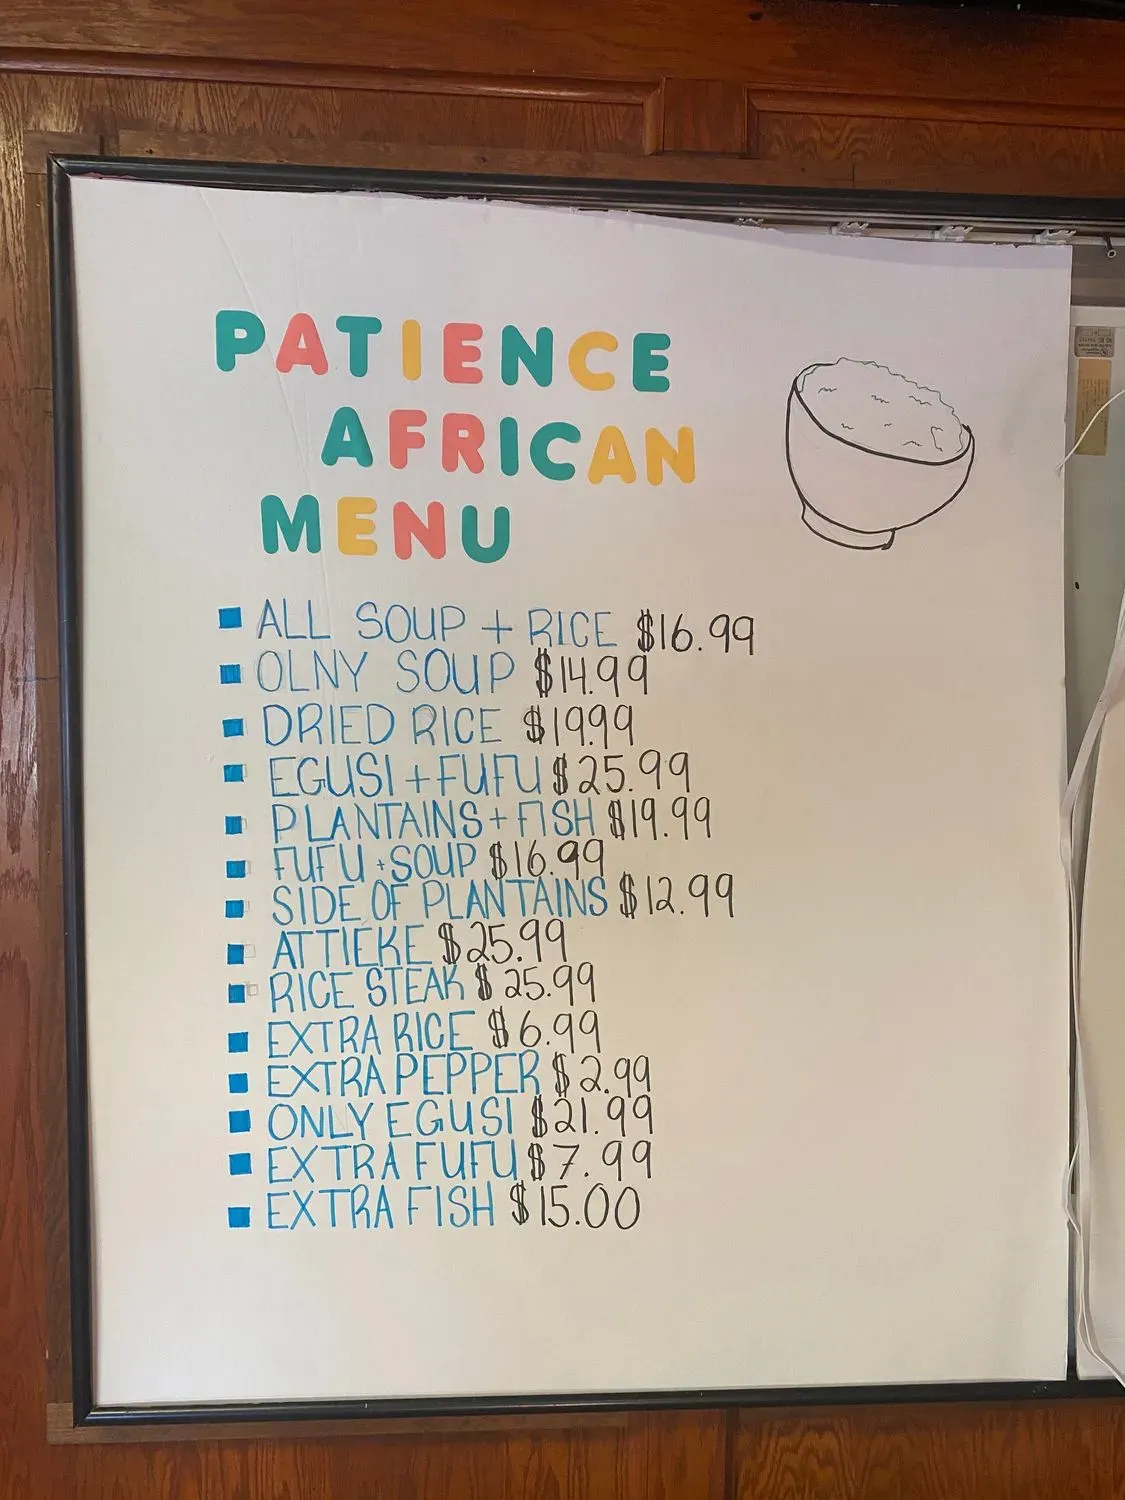 PATIENCE
AFRICAN
MENU
ALL SOUP + RICE $16.99
OLNY SOUP $14.99
DRIED RICE $19.99
EGUSI + FUFU $25.99
PLANTAINS + FISH $19.99
FUFU + SOUP $16.99
SIDE OF PLANTAINS $12.99
ATTIEKE $25.99
RICE STEAK $25.99
EXTRA RICE $6.99
EXTRA PEPPER $2.99
ONLY EGUSI $21.99
EXTRA FUFU $7.99
EXTRA FISH $15.00